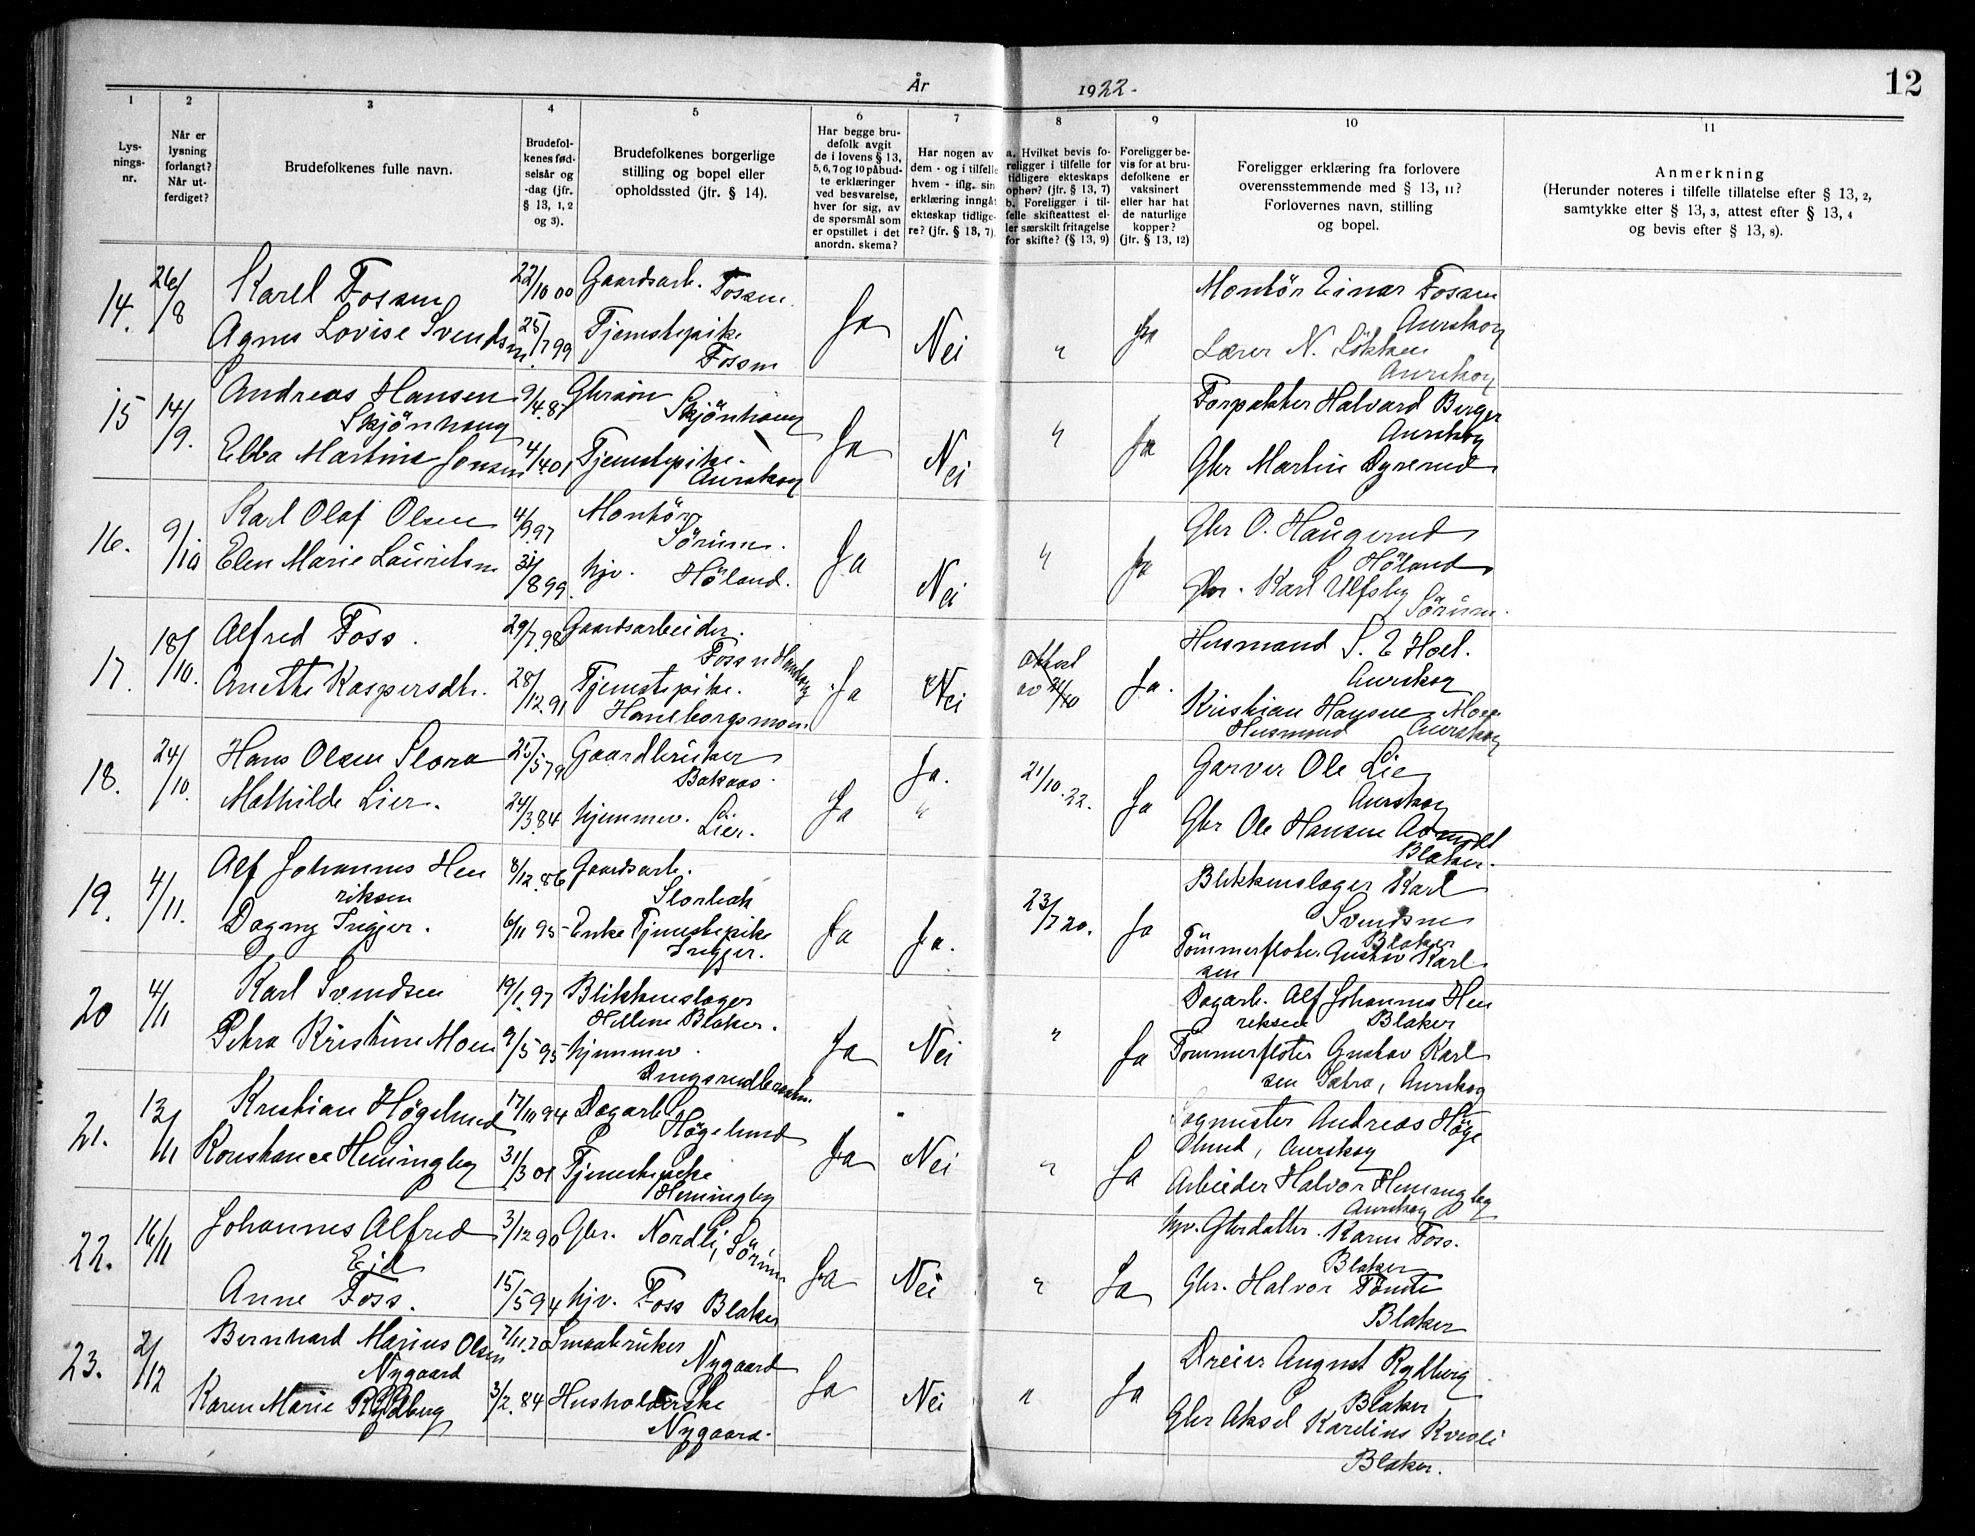 År
1922.
12
1
2
3
4
5
6
7
8
9
10
11
Lys-
nings-
nr.
Når er
lysning
forlangt?
Når ut-
ferdiget?
Brudefolkenes fulle navn.
Brudefol-
kenes fød-
selsår og
-dag (jfr.
§ 13, 1, 2
og 3).
Brudefolkenes borgerlige
stilling og bopel eller
opholdssted (jfr. § 14).
Har begge bru-
defolk avgit
de i lovens § 13,
5, 6, 7 og 10 påbud-
te erklæringer
ved besvarelse,
hver for sig, av
de spørsmål som
er opstillet i det
anordn. skema?
Har nogen av
dem - og i tilfelle
hvem - iflg. sin
erklæring inngåt
ekteskap tidlige-
re? (jfr. § 13, 7).
a. Hvilket bevis fo-
religger i tilfelle for
tidligere ekteskaps
ophør? (jfr. § 13, 7)
b. Foreligger i til-
felle skifteattest el-
ler særskilt fritagelse
for skifte? (§ 13, 9)
Foreligger be-
vis for at bru-
defolkene er
vaksinert
eller har hat
de naturlige
kopper?
(jfr. § 13, 12)
Foreligger erklæring fra forlovere
overensstemmende med § 13, 11?
Forlovernes navn, stilling
og bopel.
Anmerkning
(Herunder noteres i tilfelle tillatelse efter § 13, 2,
samtykke efter § 13, 3, attest efter § 13, 4
og bevis efter § 13, 8).
14. 26/8 Karel Fossum 22/10 00 Gaardsarb. Fossum.
Agnes Lovise Svendsen 25/7 99 Tjenestepike
Fossum
Ja Nei " Ja
Montör Einar Fossum
Aurskog
Lærer N. Lökken
Aurskog
15 14/9. Andreas Hansen 9/4.87 Gbrsön
Skjönhaug Skjönhaug
Ebba Martine Jonsen 4/4 01 Tjenestepike.
Aurskog
Ja Nei " Ja
Forpakter Halvard Berger
Aurskog
Gbr Martin Dyrerud
16. 9/10 Karl Olaf Olsen 4/9 97 Montör
Sörum.
Elen Marie Lauritsen 31/8 99. hjv. Höland.
Ja Nei " Ja
Gbr O. Haugerud
Höland
Gbr. Karl Ulfsby
Sörum.
17. 18/10. Alfred Foss. 29/7.98 Gaardsarbeider.
Anette Kaspersdtr. 28/12.91 Tjenestepike.
Haneborgsmoen.
Ja Nei
av 21/10
Ja.
Husmand S. E Hoel.
Aurskog
Kristian Hansen Moen
Husmand Aurskog
18. 24/10. Hans Olsen Slora 25/5 79 Gaardbruker
Bakaas.
Mathilde Lier. 24/3.84 hjemmev. Lier.
Ja Ja. " 21/10.22. Ja
Garver Ole Lie
Aurskog
Gbr Ole Hansen
Blaker.
19. 4/11. Alf Johannes Hen 8/12.86 Gaardsarb.
riksen Slorbak
Dagny Ingjer. 6/11 95 Enke Tjenestepike
Ingjer.
Ja Ja. 23/7 20. Ja
Blikkenslager Karl
Svendsen
Blaker
Tömmerfloter Gustav Karl
sen
20 4/11 Karl Svendsen 19/1.97 Blikkenslager
Hellene Blaker.
Petra Kristine Moen 9/5 95 hjemmev.
Ja Nei " Ja
Dagarb. Alf Johannes Hen
riksen Blaker
Tömmerfloter Gustav Karl
sen Sætra, Aurskog
21. 13/11 Kristian Högelund 17/10 94 Dagarb.
Högelund
Konstance Hemingby 31/3 01 Tjenestepike
Hemingby
Ja Nei " Ja
Sagmester Andreas Höge
lund, Aurskog
Arbeider Halvor Hemingby
Aurskog
22. 16/11 Johannes Alfred 3/12 90 Gbr. Nordli, Sörum
Eid
Anne Foss. 15/5 94 hjv. Foss Blaker
Ja Nei " Ja
hjv. Gbrdatter. Karen Foss.
Blaker
Gbr. Halvor Tömte
Blaker
23. 2/12 Bernhard Marius Olsen 7/11.70 Smaabruker
Nygaard Nygaard
Karen Marie Rydberg 3/2.84 Husholderske
Nygaard.
Ja Nei " Ja
Dreier August Rydberg
Blaker
Gbr Aksel Karelius Kvevli
Blaker.